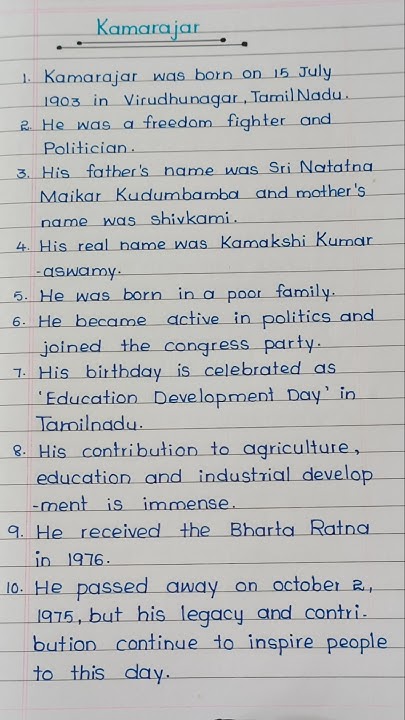 Kamarajar
1. Kamarajar was born on 15 July
1903 in Virudhunagar, TamilNadu.
2. He was a freedom fighter and
Politician.
3. His father's name was Sri Natatna
Maikar Kudumbamba and mother's
name was shivkami.
4. His real name was Kamakshi Kumar
-aswamy.
5. He was born in a poor family.
6. He became active in politics and
joined the congress party.
7. His birthday is celebrated as
'Education Development Day' in
Tamilnadu.
8. His contribution to agriculture,
education and industrial develop
-ment is immense.
9. He received the Bharta Ratna
in 1976.
10. He passed away on october 2,
1975, but his legacy and contri-
bution continue to inspire people
to this day.